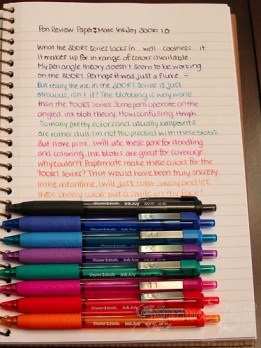 Pen Review: Papermate InkJoy 300RT 1.0
What the 300RT series lacks in... well... coolness... it
it makes up for in range of colors available.
My pen angle theory doesn't seem to be working
on the 300RT. Perhaps it was just a fluke.
But really the ink in the 300RT series is just
atrocious, isn't it? The blobbing is way worse
than the 700RT series. Some pens operate on the
angled ink blob theory. How confusing. Hmph.
So many pretty colors and usually
are rather dull. I'm not too pleased with these blobs.
But I love pink! I will use these pens for doodling
and coloring. Ink blobs are great for coverage.
Why couldn't Papermate make these colors for the
700RT series? That would have been truly snazzy.
In the meantime, I will just color away and let
these cheery colors put a smile on my face!
Paper Mate InkJoy
Paper Mate InkJoy
Paper Mate InkJoy
Paper Mate InkJoy
Paper Mate InkJoy
Paper Mate InkJoy
Paper Mate InkJoy
Paper Mate InkJoy